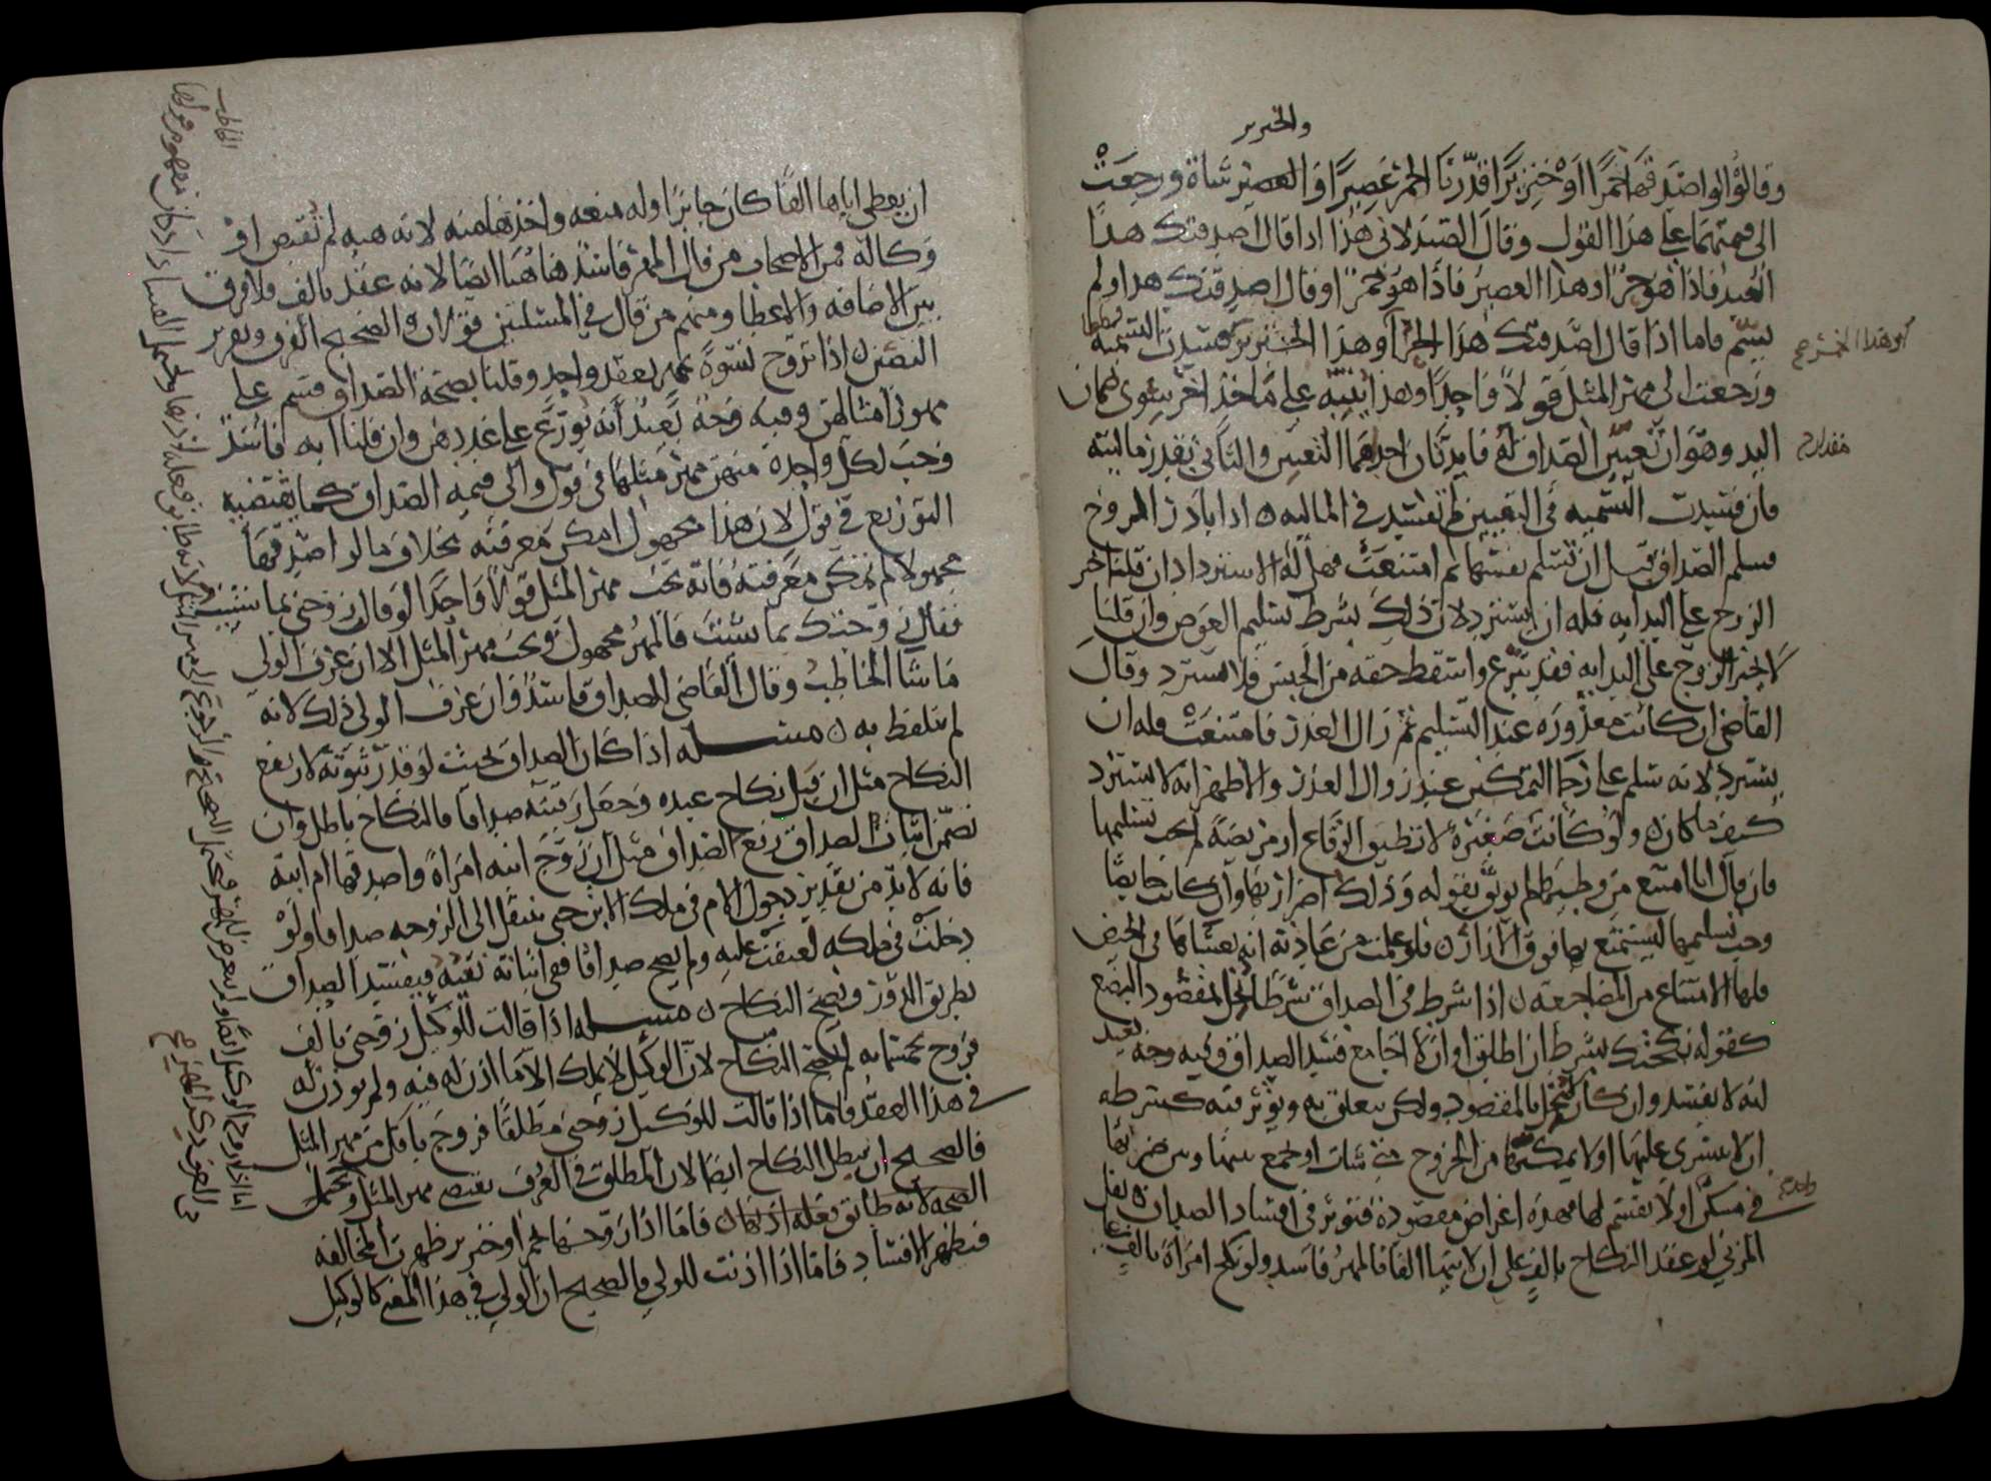 والخنزير
وقالوا لو اصدقها خمرا او خنزيرا قدرنا الخمر عصيرا والعصير شاة ورجعت
الى قيمتهما على هذا القول وقال الصيدلاني هذا اذا قال اصدقتك هذا
العبد فاذا هو حر او هذا العصير فاذا هو خمر او قال اصدقتك هذا ولم
يسم فاما اذا قال اصدقتك هذا الحر او هذا الخنزير فسدت التسمية
او هذا الخمر صح
ورجعت الى مهر المثل قولا واحدا وهذا ينبه على ماخذ اخر سوى ضمان
اليد وهو ان تعيين الصداق له فايدتان احداهما التعيين والثاني تقدير ماليته
مقدار
فان فسدت التسمية في التعيين لم تفسد في المالية اذا بادر الزوج
فسلم الصداق قبل ان تسلم نفسها ثم امتنعت فهل له الاسترداد ان قلنا اجبر
الزوج على البداية فله ان يسترد لان ذلك بشرط تسليم العوض وان قلنا
لا يجبر الزوج على البداية فقد تبرع واسقط حقه من الحبس فلا يسترد وقال
القاضي ان كانت معذورة عند التسليم ثم زال العذر فامتنعت فله ان
يسترد لانه سلم على رجا التمكين عند زوال العذر والاظهر انه لا يسترد
كيف ما كان ولو كانت صغيرة لا تطيق الوقاع او مريضة لم يجب تسليمها
فان قال انا امتنع من وطيها لم يوثق بقوله وذلك اضرار بها وان كانت حايضا
وجب تسليمها ليستمتع بها فوق الازار فلو علمت من عادته انه يغشاها في الحيض
فلها الامتناع من المضاجعة اذا شرط في الصداق شرطا يخل بمقصود البضع
كقوله نكحتك بشرط ان اطلق او ان لا اجامع فسد الصداق وفيه وجه بعيد
انه لا يفسد وان كان لا يخل بالمقصود ولكن يتعلق به ويوثر فيه كشرطه
ان لا يتسرى عليها او لا يمكنها من الخروج متى شات او يجمع بينها وبين ضراتها
في مسكن او لا يقسم لها فهذه اغراض مقصودة فتوثر في افساد الصداق نقل
واحد
المزني لو عقد النكاح بالف على ان لابيها الفا فالمهر فاسد ولو نكح امراة بالف على
ان يعطي اباها الفا كان جايزا وله منعه واخذها منه لانه هبة لم تقبض او
وكالة فمن الاصحاب من قال المهر فاسد هاهنا ايضا لانه عقد بالف فلا فرق
بين الاضافة والاعطا ومنهم من قال في المسلتين قولان والصحيح الفرق وتقرير
النصين اذا تزوج نسوة بمهر بعقد واحد وقلنا بصحة الصداق قسم على
مهور امثالهن وفيه وجه بعيد انه يوزع على عددهن وان قلنا انه فاسد
وجب لكل واحدة منهن مهر مثلها في قول والى قيمة الصداق كما يقتضيه
التوزيع في قول لان هذا مجهول امكن معرفته بخلاف ما لو اصدقها
مجهولا لم يمكن معرفته فانه يجب مهر المثل قولا واحدا لو قال زوجني بما شئت
فقال زوجتك بما شئت فالمهر مجهول ويجب مهر المثل الا ان عرف الولي
ما شا الخاطب وقال القاضي الصداق فاسد وان عرف الولي ذلك لانه
لم يتلفظ به مسله اذا كان الصداق بحيث لو قدر ثبوته لارتفع
النكاح مثل ان قبل نكاح عبده وجعل رقبته صداقا فالنكاح باطل وان
تضمن اثبات الصداق رفع الصداق مثل ان زوج ابنه امراة واصدقها ام ابنه
فانه لا بد من تقدير دخول الام في ملك الابن حتى ينتقل الى الزوجة صداقا ولو
دخلت في ملكه لعتقت عليه ولم يصح صداقا ففي اثباته نفيه فيفسد الصداق
بطريق الدور ويصح النكاح مسله اذا قالت للوكيل زوجني بالف
فزوج بخمسمايه لم يصح النكاح لان الوكيل لا يملك الا ما اذن له فيه ولم يوذن له
في هذا العقد فاما اذا قالت للوكيل زوجني مطلقا فزوج باقل من مهر المثل
فالصحيح ان يبطل النكاح ايضا لان المطلق في العرف يقتضي مهر المثل ويحتمل
الصحة لانه طابق فعله اذنها فاما اذا زوجها بخمر او خنزير ظهرت المخالفه
فيظهر الافساد فاما اذا اذنت للولي فالصحيح ان الولي في هذا المعنى كالوكيل